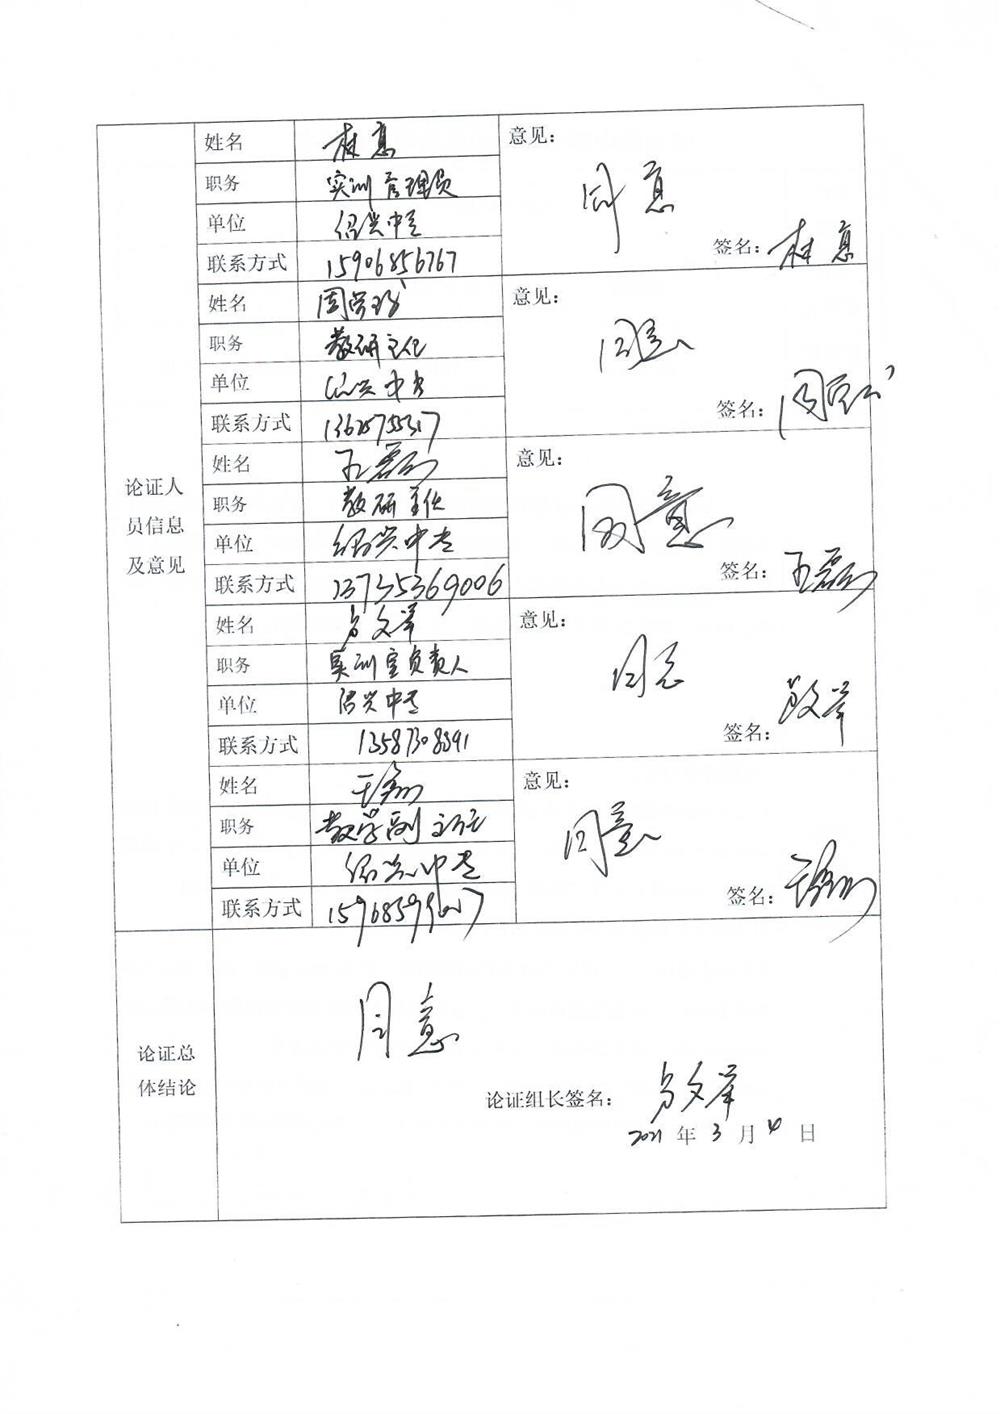 姓名 林惠 意见：
职务 实训管理员 同意
单位 绍兴中专
签名： 林惠
联系方式 15906856767
姓名 周 意见：
职务 教研主任 同意
单位 绍兴中专
签名： 周
联系方式
姓名 王磊 意见：
职务 教研主任 同意
单位 绍兴中专
签名： 王磊
联系方式 13735369006
论证人
员信息
及意见
姓名 文举 意见：
职务 实训室负责人 同意
单位 绍兴中专
签名： 文举
联系方式 13587308391
姓名 意见：
职务 教学副主任 同意
单位 绍兴中专
签名：
联系方式
论证总
体结论
同意
论证组长签名： 文举
2021 年 3 月 4 日